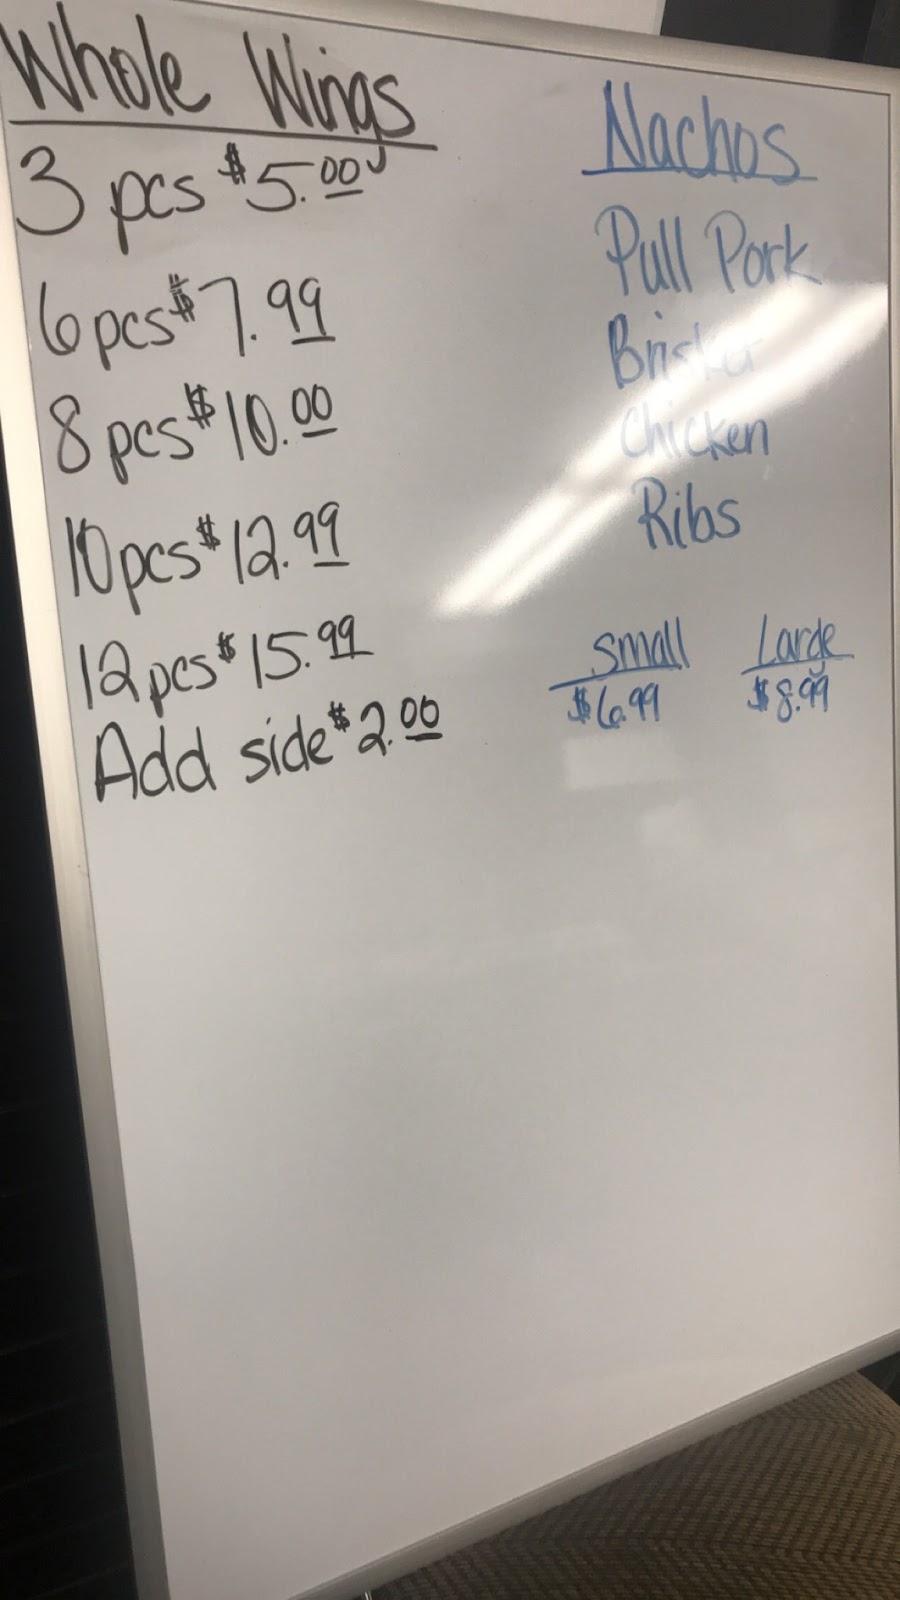 Whole Wings
3 pcs $5.00
6 pcs $7.99
8 pcs $10.00
10 pcs $12.99
12 pcs $15.99
Add side $2.00
Nachos
Pull Pork
Brisket
Chicken
Ribs
Small Large
$6.99 $8.99